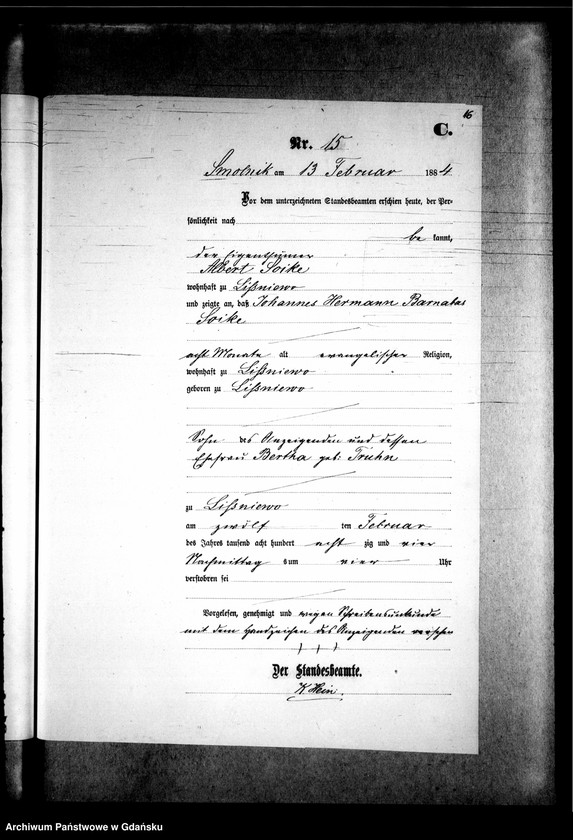 16
C.
Nr. 15
Smolnik am 13 Februar 1884
Vor dem unterzeichneten Standesbeamten erschien heute, der Per-
sönlichkeit nach
be kannt,
der Eigenthümer
Albert Soike
wohnhaft zu Lißniewo
und zeigte an, daß Johannes Hermann Barnabas
Soike
acht Monate alt evangelischer Religion,
wohnhaft zu Lißniewo
geboren zu Lißniewo
Sohn des Anzeigenden und dessen
Ehefrau Bertha geb: Truhn
zu Lißniewo
am zwölf ten Februar
des Jahres tausend acht hundert acht zig und vier
Nachmittag s um vier Uhr
verstorben sei
Vorgelesen, genehmigt und wegen Schreibensunkunde
mit dem Handzeichen des Anzeigenden versehen
+ + +
Der Standesbeamte.
K Hein.
Archiwum Państwowe w Gdańsku